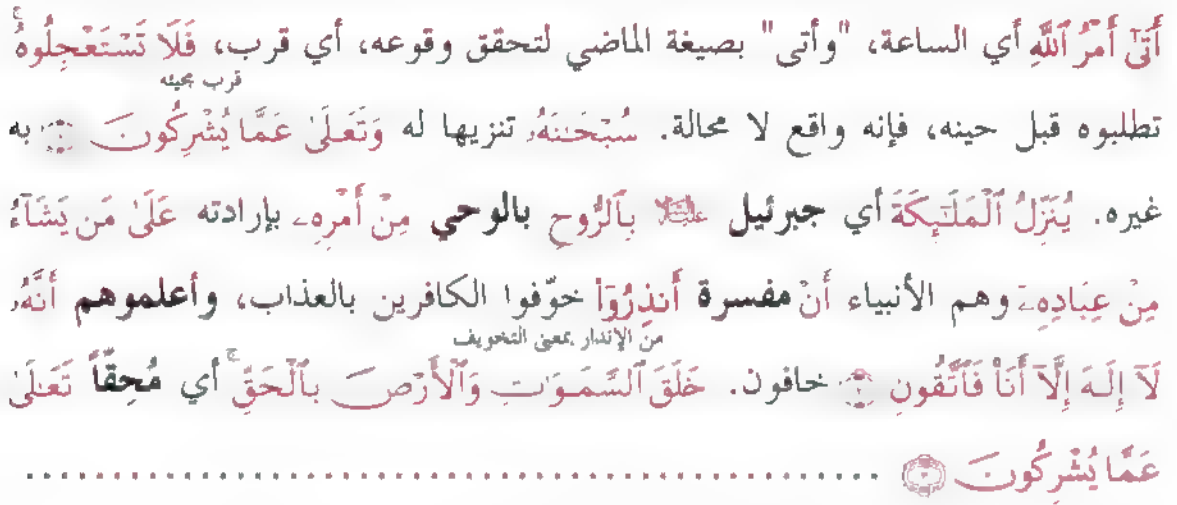 أَتَىٰٓ أَمْرُ ٱللَّهِ أي الساعة، "وأتى" بصيغة الماضي لتحقق وقوعه، أي قرب، فَلَا تَسْتَعْجِلُوهُ ۚ
قرب مجيئه
تطلبوه قبل حينه، فإنه واقع لا محالة. سُبْحَـٰنَهُۥ تنزيها له وَتَعَـٰلَىٰ عَمَّا يُشْرِكُونَ ۝١ به
غيره. يُنَزِّلُ ٱلْمَلَـٰٓئِكَةَ أي جبرئيل عليه السلام بِٱلرُّوحِ بالوحي مِنْ أَمْرِهِۦ بإرادته عَلَىٰ مَن يَشَآءُ
مِنْ عِبَادِهِۦٓ وهم الأنبياء أَنْ مفسرة أَنذِرُوٓا۟ خوّفوا الكافرين بالعذاب، وأعلموهم أَنَّهُۥ
من الإنذار بمعنى التخويف
لَآ إِلَـٰهَ إِلَّآ أَنَا۠ فَٱتَّقُونِ ۝٢ خافون. خَلَقَ ٱلسَّمَـٰوَٰتِ وَٱلْأَرْضَ بِٱلْحَقِّ ۚ أي مُحِقّاً تَعَـٰلَىٰ
عَمَّا يُشْرِكُونَ ۝٣ ..................................................